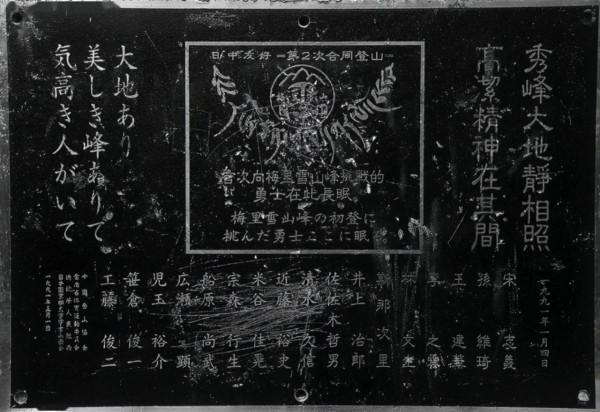 秀峰大地靜相照
高潔精神在其間
日中友好 第2次合同登山
首次向梅里雪山峰挑戦的
勇士在此長眠
梅里雪山峰の初登に
挑んだ勇士ここに眠
大地あり
美しき峰ありて
気高き人がいて
一九九一年一月四日
宋 志義
孫 維琦
王 建華
之雲
林 文生
那次里
井上 治郎
佐佐木哲男
清水 久信
近藤 裕史
米谷 佳
宗森 行生
船原 尚武
広瀬 顕
児玉 裕介
笹倉 俊一
工藤 俊二
中国登山協会
雲南省体育運動委員会